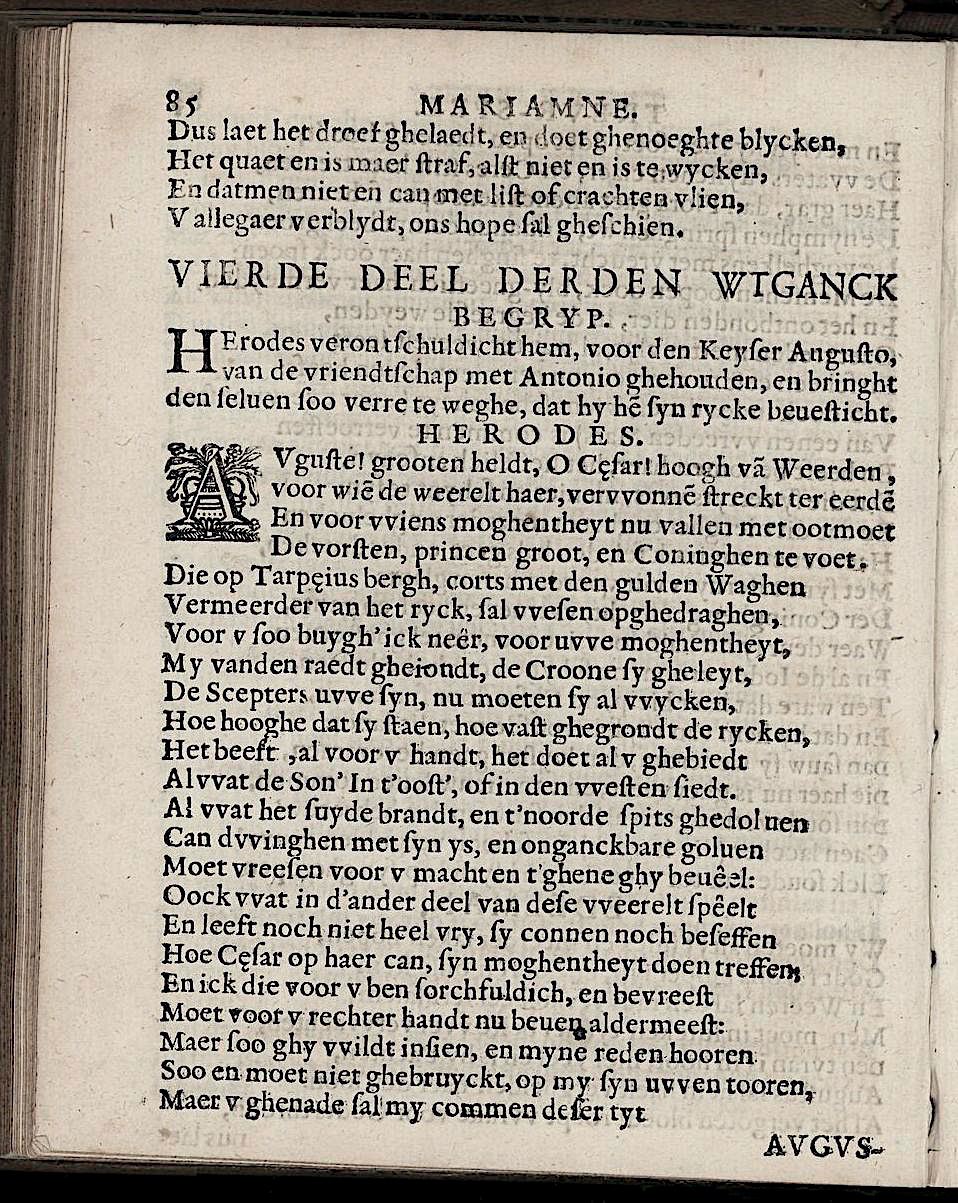 85 MARIAMNE.
Dus laet het droef ghelaedt, en doet ghenoeghte blycken,
Het quaet en is maer ſtraf, alſt niet en is te wycken,
En datmen niet en can met liſt of crachten vlien,
V allegaer verblydt, ons hope ſal gheſchien.
VIERDE DEEL DERDEN WTGANCK
BEGRYP.
HErodes verontſchuldicht hem, voor den Keyſer Auguſto,
van de vriendtſchap met Antonio ghehouden, en bringht
den ſeluen ſoo verre te weghe, dat hy hẽ ſyn rycke beueſticht.
HERODES.
AVguſte! grooten heldt, O Cęſar! hoogh vã Weerden,
voor wiẽ de weerelt haer, vervvonnẽ ſtreckt ter eerdẽ
En voor vviens moghentheyt nu vallen met ootmoet
De vorſten, princen groot, en Coninghen te voet.
Die op Tarpęius bergh, corts met den gulden Waghen
Vermeerder van het ryck, ſal vveſen opghedraghen,
Voor v ſoo buygh' ick neêr, voor uvve moghentheyt,
My vanden raedt gheiondt, de Croone ſy gheleyt,
De Scepters uvve ſyn, nu moeten ſy al vvycken,
Hoe hooghe dat ſy ſtaen, hoe vaſt ghegrondt de rycken,
Het beeft ,al voor v handt, het doet al v ghebiedt
Al vvat de Son' In t'ooſt', of in den vveſten ſiedt.
Al vvat het ſuyde brandt, en t'noorde ſpits ghedoluen
Can dvvinghen met ſyn ys, en onganckbare goluen
Moet vreeſen voor v macht en t'ghene ghy beuêel:
Oock vvat in d'ander deel van deſe vveerelt ſpêelt
En leeft noch niet heel vry, ſy connen noch beſeffen
Hoe Cęſar op haer can, ſyn moghentheyt doen treffen,
En ick die voor v ben ſorchfuldich, en bevreeſt
Moet voor v rechter handt nu beuen aldermeeſt:
Maer ſoo ghy vvildt inſien, en mynẽ reden hooren
Soo en moet niet ghebruyckt, op my ſyn uvven tooren,
Maer v ghenade ſal my commen deſer tyt
AVGVS-